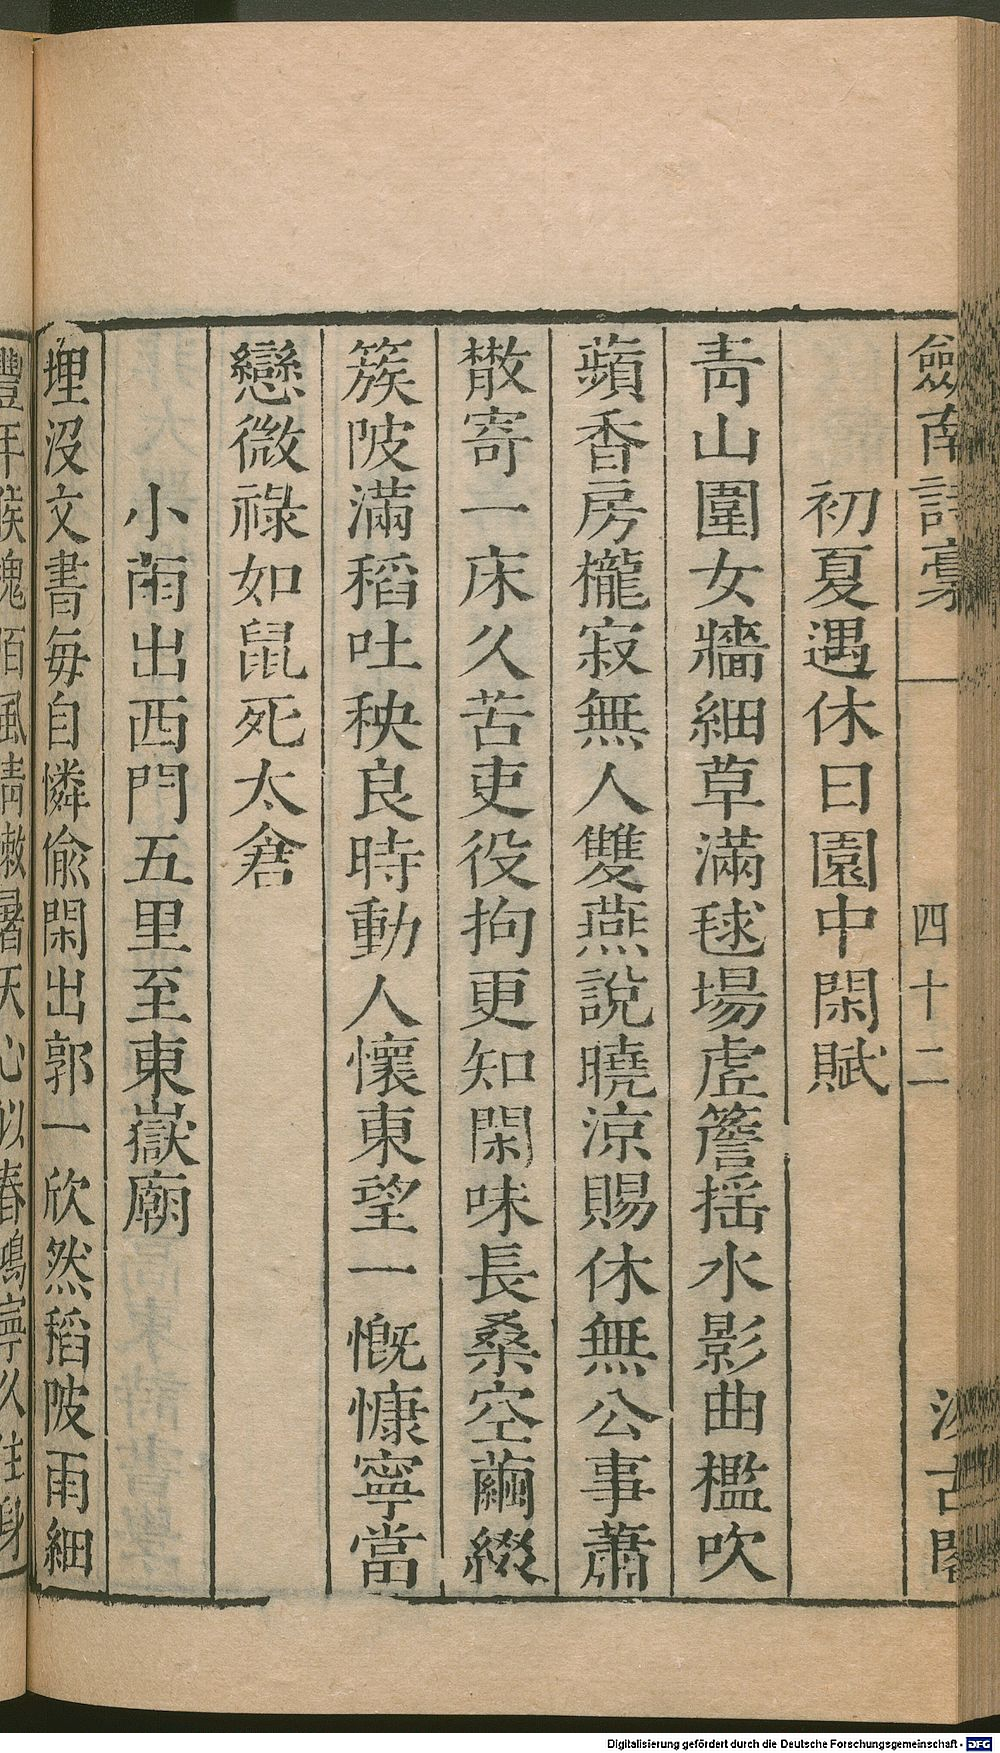 劒南詩稾 四十二
初夏遇休日園中閑賦
青山圍女牆細草滿毬場虛簷揺水影曲檻吹
蘋香房櫳寂無人雙燕説曉涼賜休無公事蕭
散寄一床久苦吏役拘更知閑味長桑空繭綴
簇陂滿稻吐秧良時動人懷東望一慨慷寧當
戀微祿如鼠死太倉
小雨出西門五里至東嶽廟
埋沒文書每自憐偷閑出郭一欣然稻陂雨細
Digitalisierung gefördert durch die Deutsche Forschungsgemeinschaft - DFG